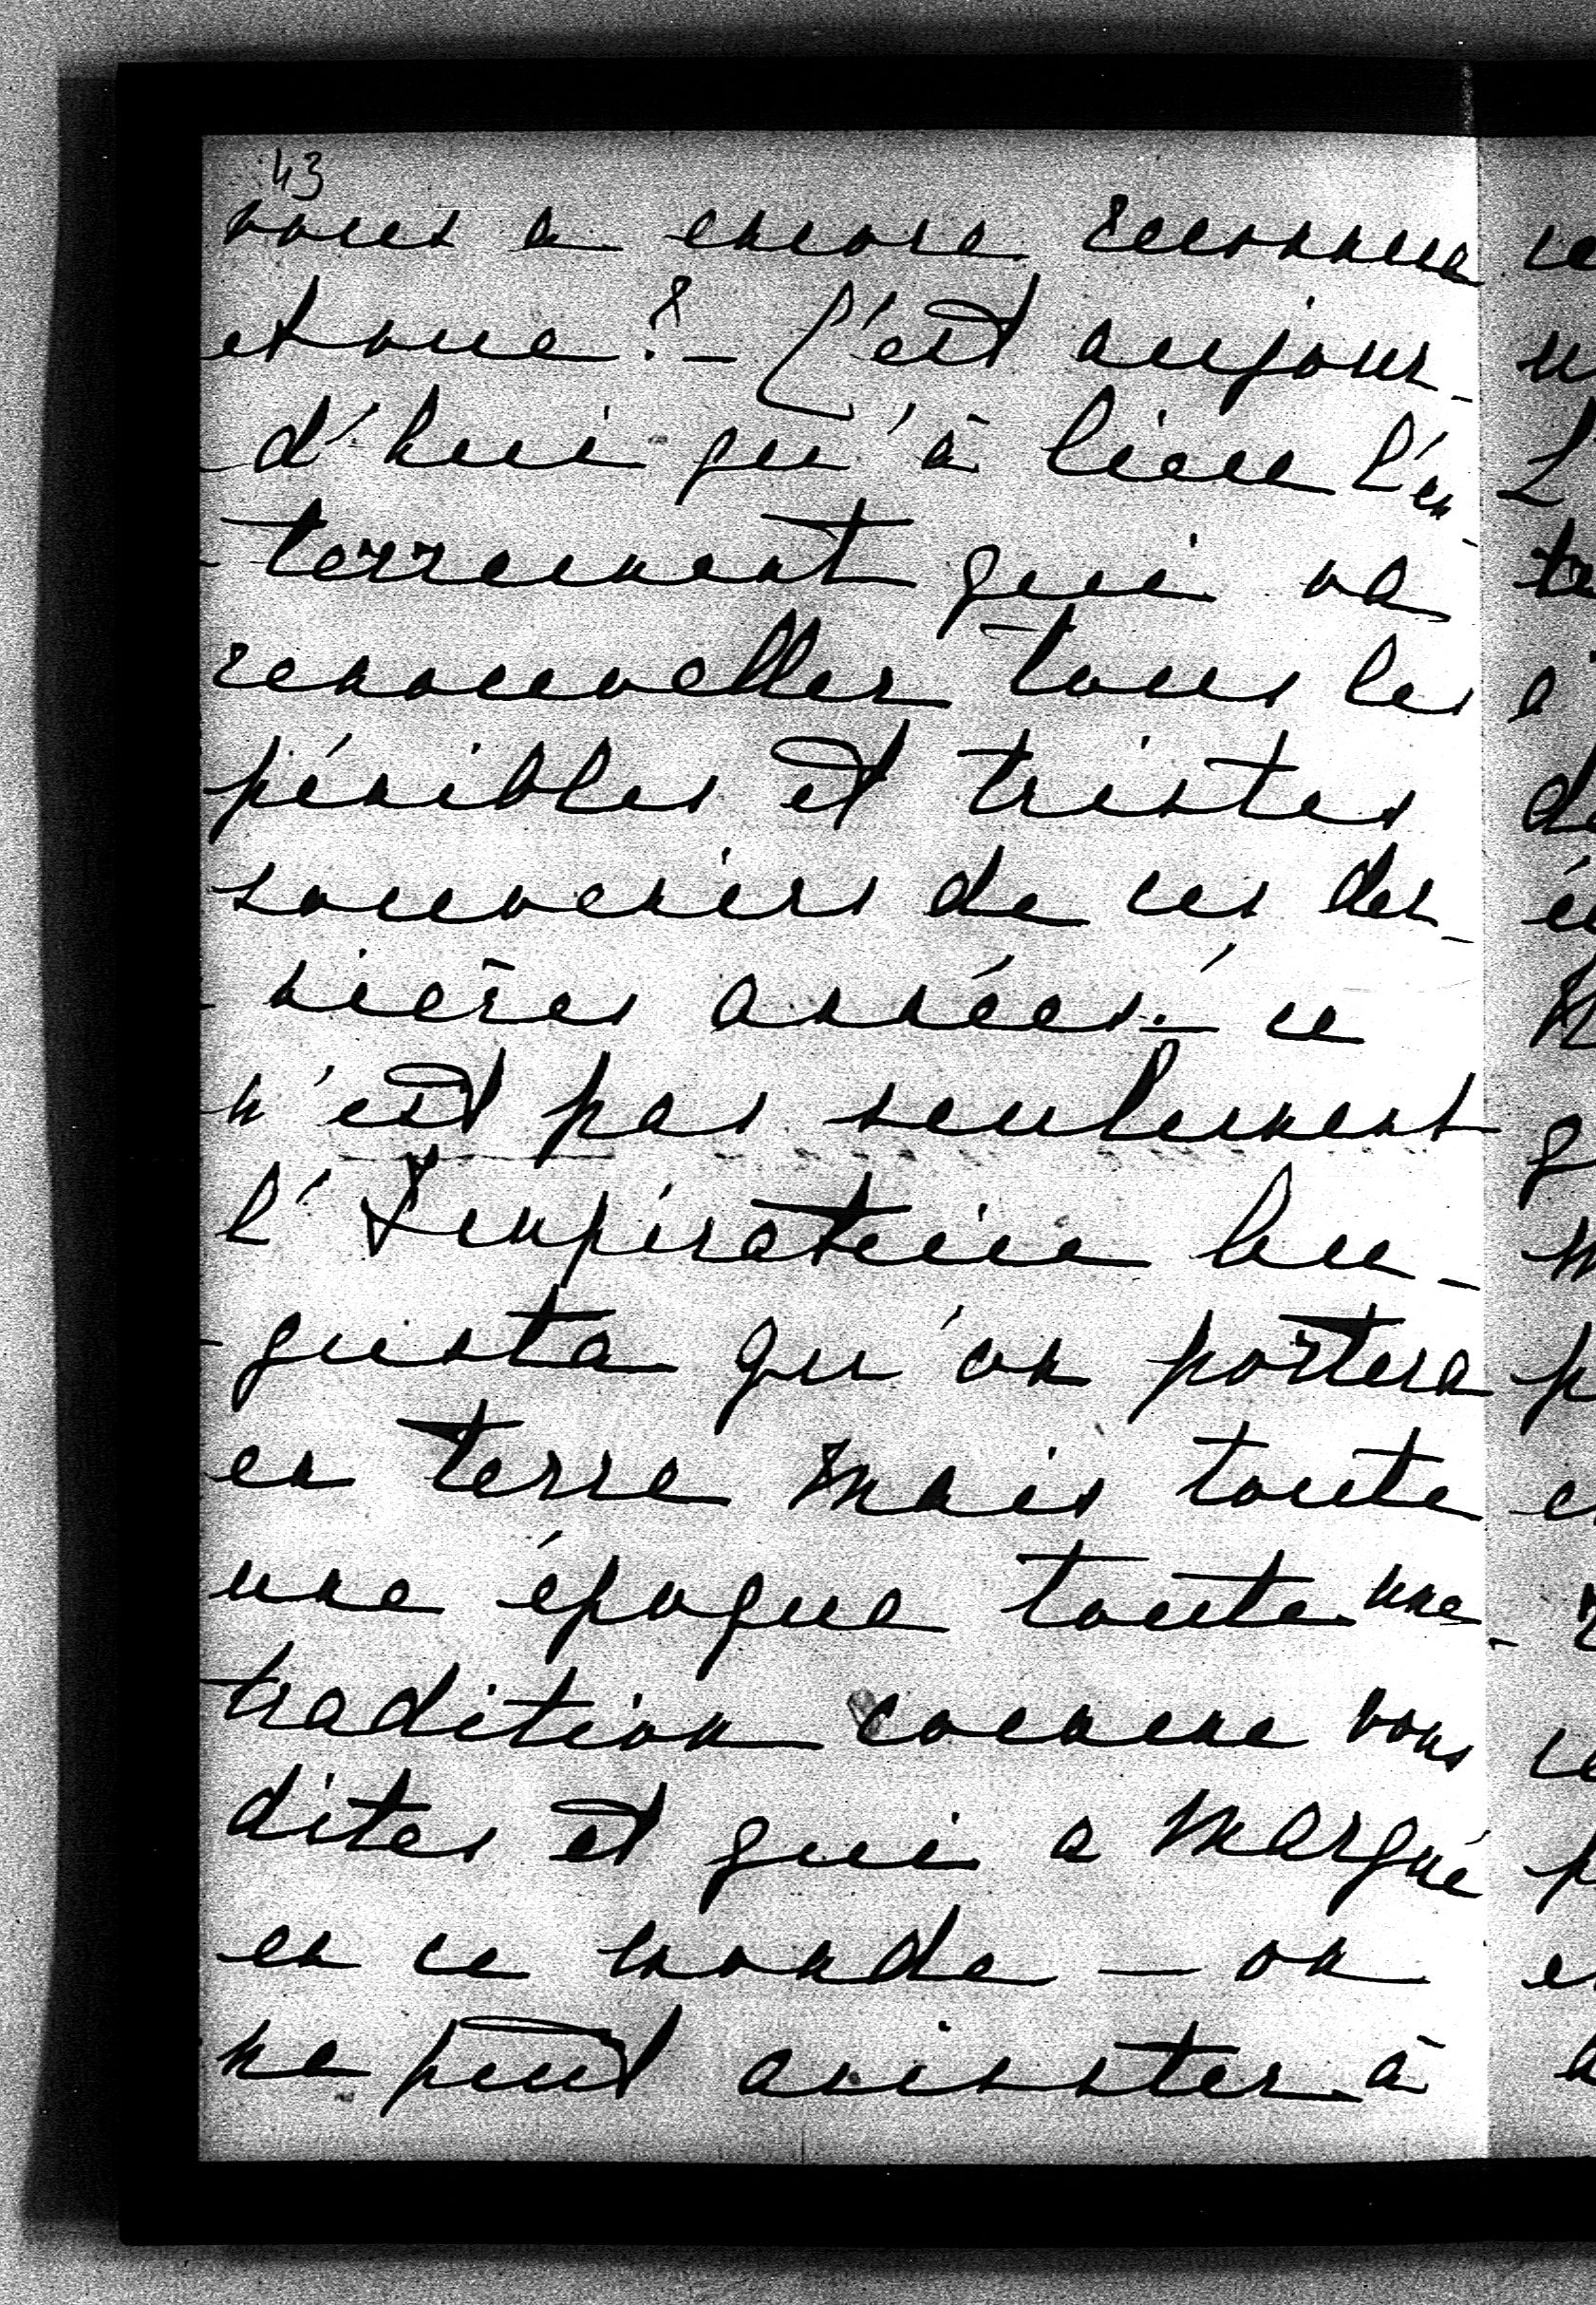 43
vous a encore reconnue
et vue? – C'est aujour-
-d'hui qu'à lieu l'en-
-terrement qui va
renouveller tous les
pénibles et tristes
souvenirs de ces der-
-nières années. – ce
n'est pas seulement
l'Impératrice Au-
-gusta qu'on portera
en terre mais toute
une époque toute une
tradition comme vous
dites et qui a marqué
en ce monde – on
ne peut assister à